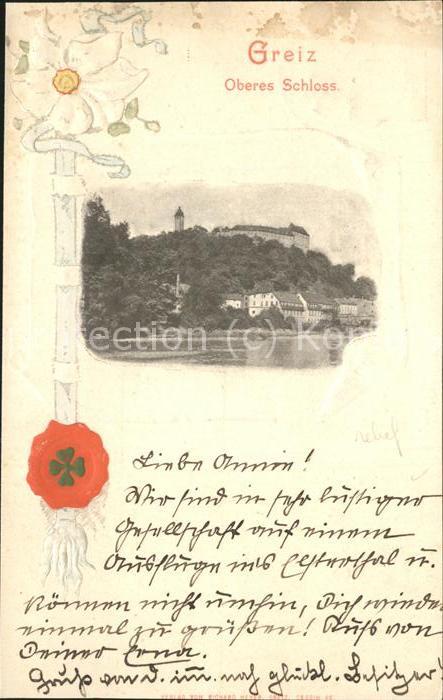 Greiz
Oberes Schloss.
Collection (c) Ko
rebel
Liebe Annie!
Wir sind in sehr lustiger
Gesellschaft auf einem
Ausfluge ins Elsterthal u.
können nicht umhin, Dich wieder
einmal zu grüßen! Kuss von
Deiner Erna.
Gruß von d. im. noch glückl. Besitzer!
VERLAG VON RICHARD HEYNE, GREIZ.